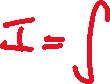 I = ∫